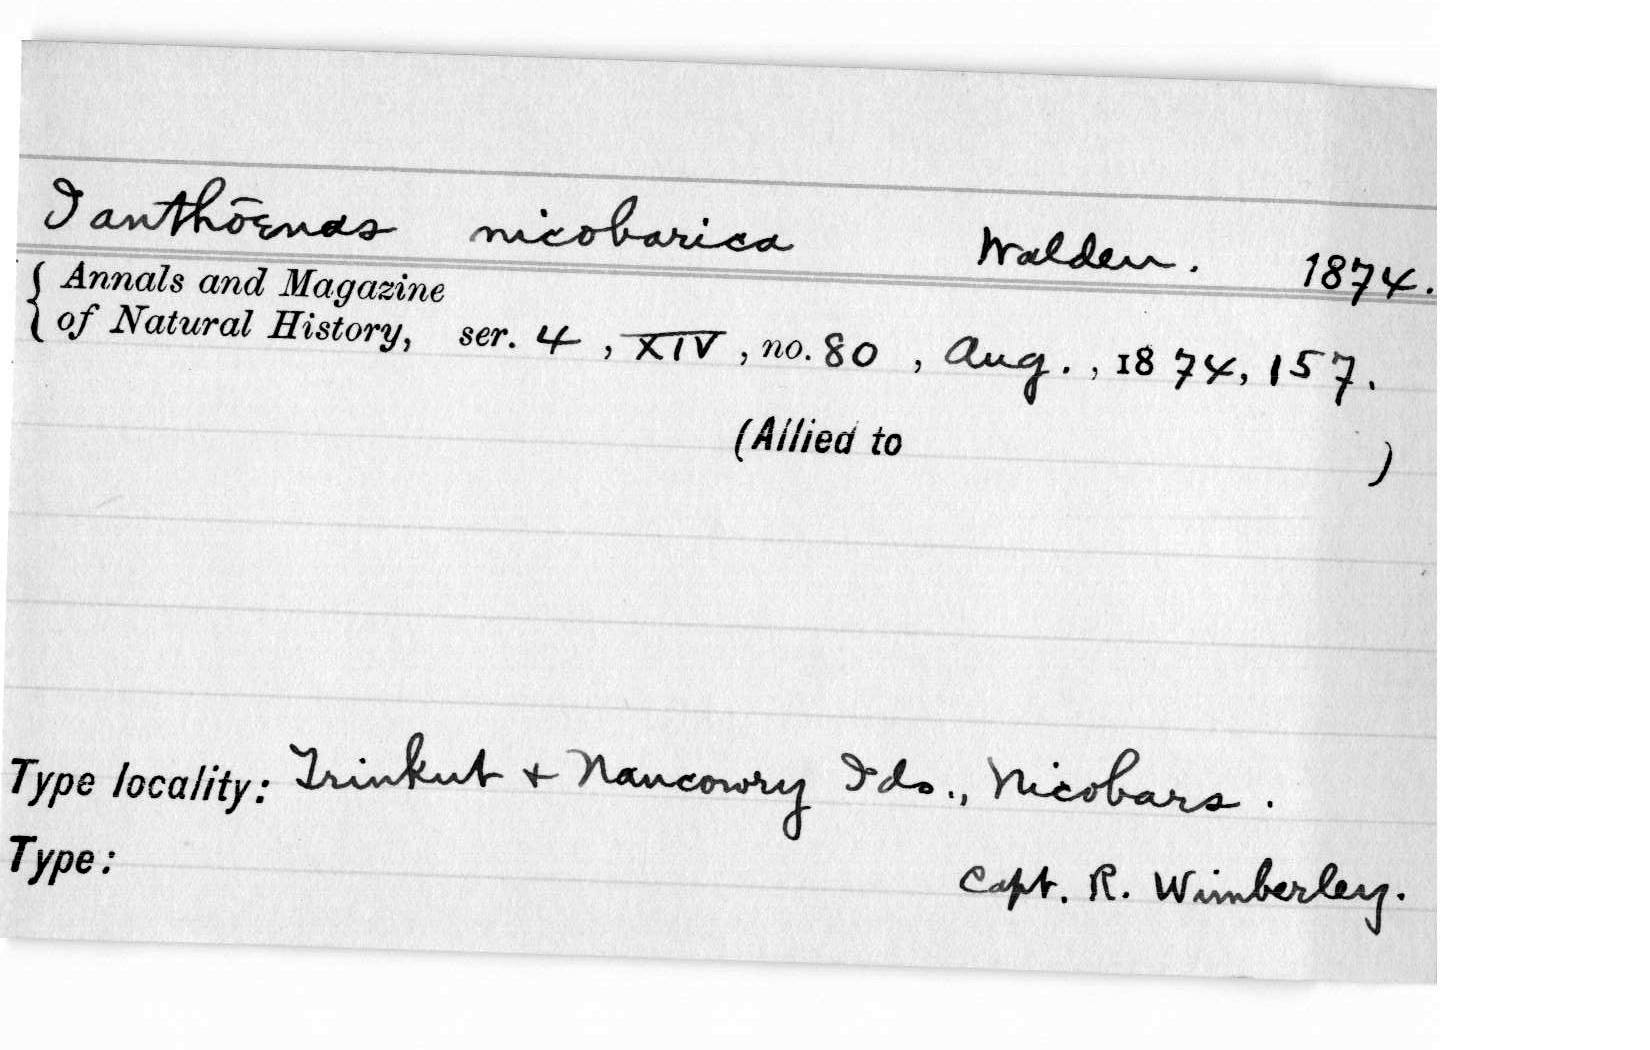 Ianthōenas nicobarica Walden. 1874.
{ Annals and Magazine
of Natural History, ser. 4, XIV, no. 80, Aug., 1874, 157.
(Allied to )
Type locality: Trinkut + Nancowry Ids., Nicobars.
Type: Capt. R. Wimberley.